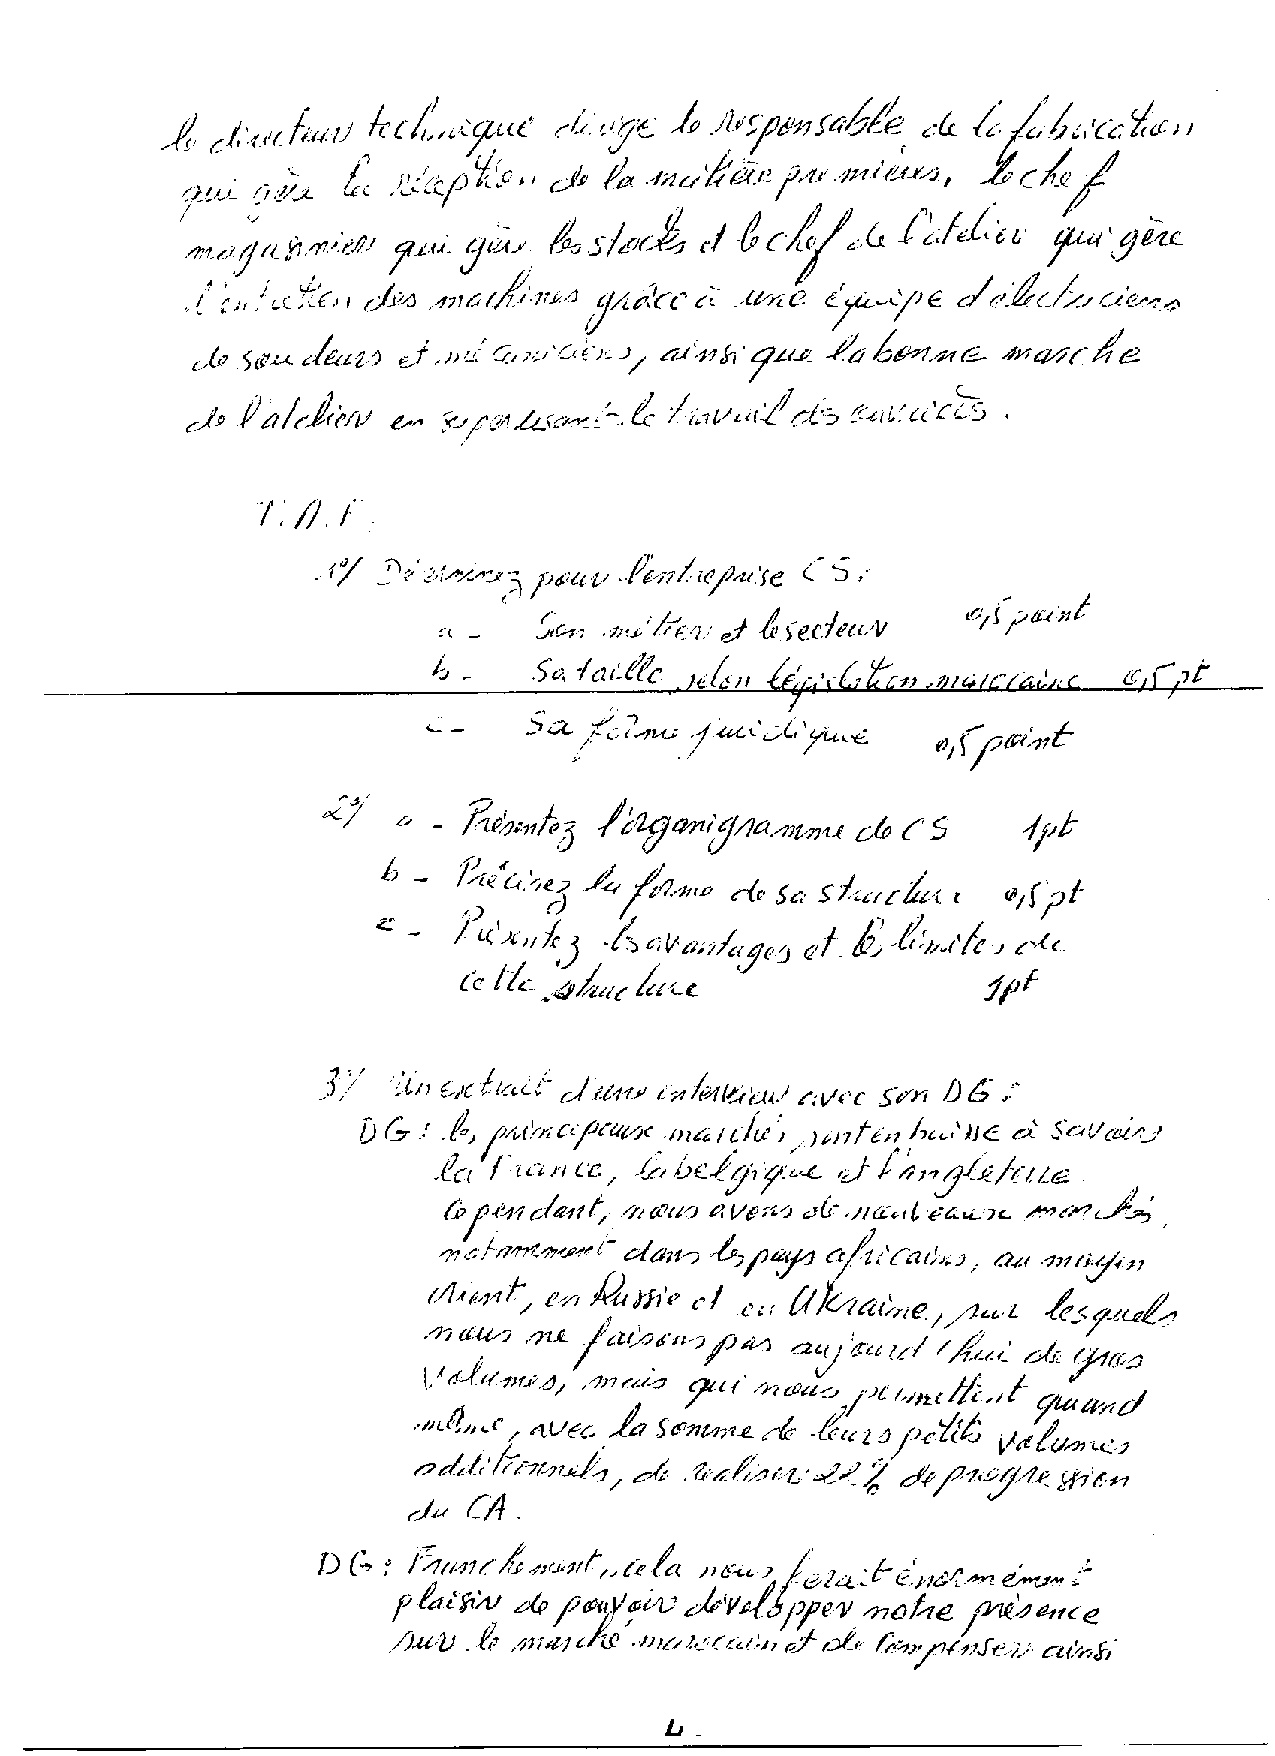 le directeur technique dirige le responsable de la fabrication
qui gère la réception de la matière premières, le chef
magasinier qui gère les stocks et le chef de l'atelier qui gère
l'entretien des machines grâce à une équipe d'électriciens
de soudeurs et mécaniciens, ainsi que la bonne marche
de l'atelier en supervisant le travail des
T.A.F.
1°/ Déterminez pour l'entreprise CS :
a - Son métier et le secteur 0,5 point
b - Sa taille selon législation marocaine 0,5 pt
c - Sa forme juridique 0,5 point
2°/ a - Présentez l'organigramme de CS 1pt
b - Précisez la forme de sa structure 0,5 pt
c - Présentez les avantages et les limites de
cette structure 1pt
3°/ Un extrait d'une interview avec son DG :
DG : les principaux marchés sont en hausse à savoir
la France, la belgique et l'angleterre.
Cependant, nous avons de nouveaux marchés,
notamment dans les pays africains, au moyen
orient, en Russie et en Ukraine, sur lesquels
nous ne faisons pas aujourd'hui de gros
volumes, mais qui nous permettent quand
même, avec la somme de leurs petits volumes
additionnels, de realiser 22% de progression
du CA.
DG : Franchement, cela nous ferait énormément
plaisir de pouvoir développer notre présence
sur le marché marocain et de compenser ainsi
4 -